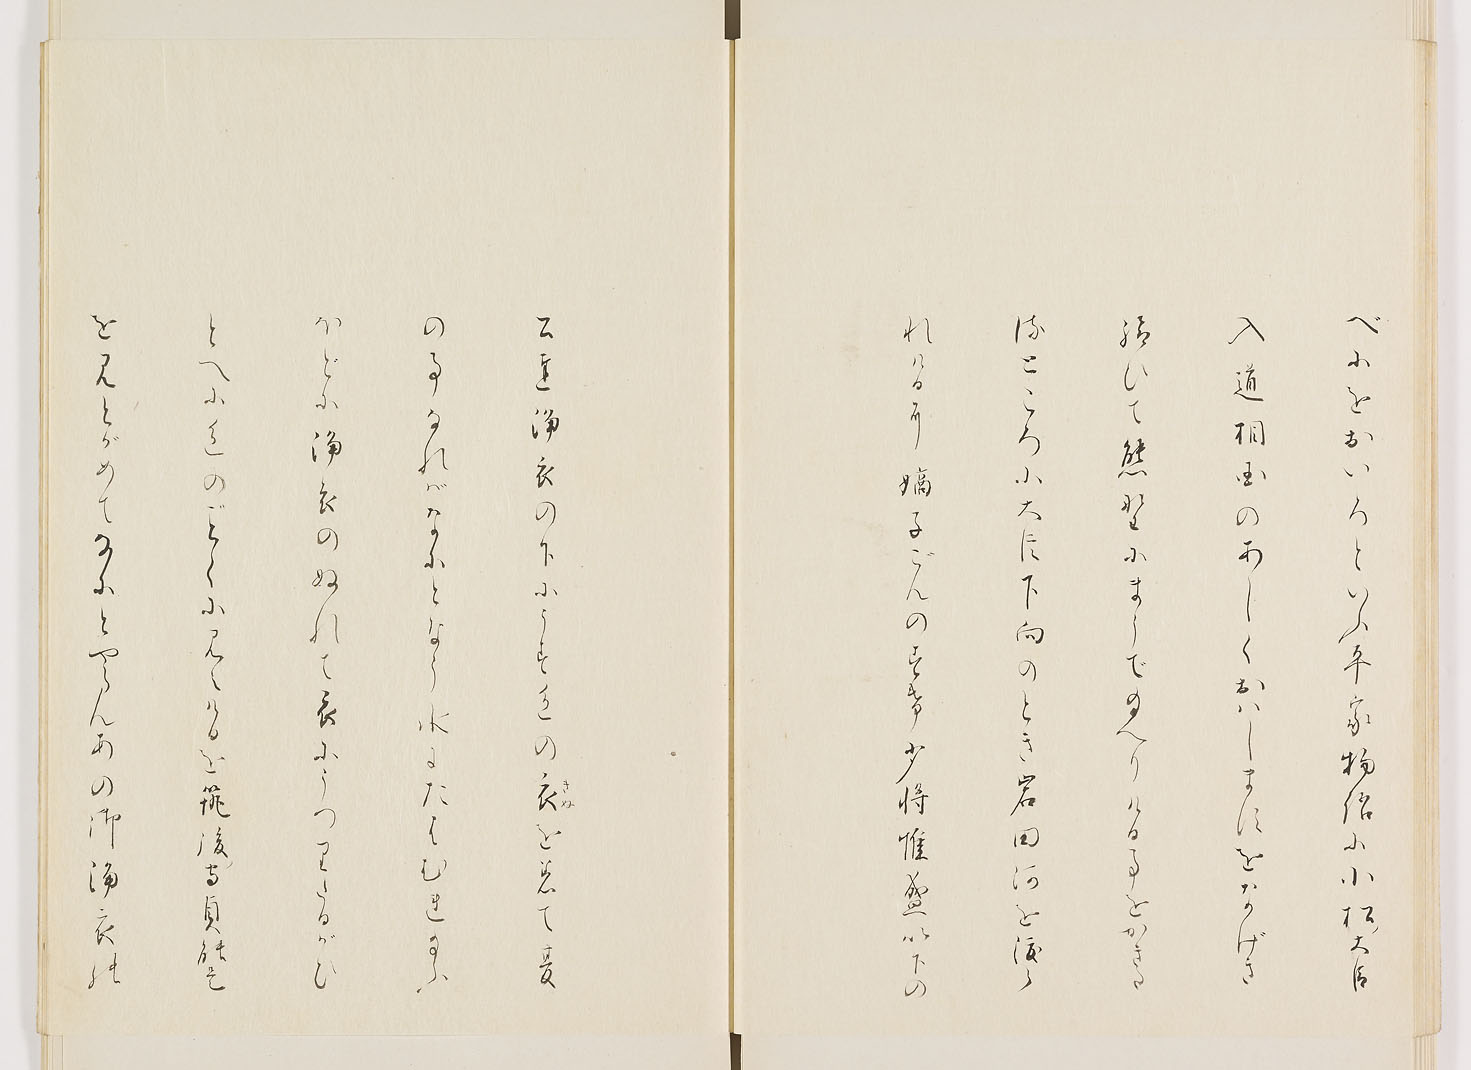 べにをおいろといふ平家物語に小松大臣
入道相国のあしくおはしますをなげき
給ひて熊野にまうでのへりける事をかきた
るところに大臣下向のとき岩田河を渡ら
れけるに嫡子ごんのすけ少将惟盛以下の
公達浄衣の下にうす色の衣を着て夏
きぬ
の事なればなにとなう水にたはむれ給ふ
ほどに浄衣のぬれて衣にうつりたるがひ
とへに色のごとくに見えけるを筑後守貞能是
を見とがめてなにとやらんあの御浄衣の